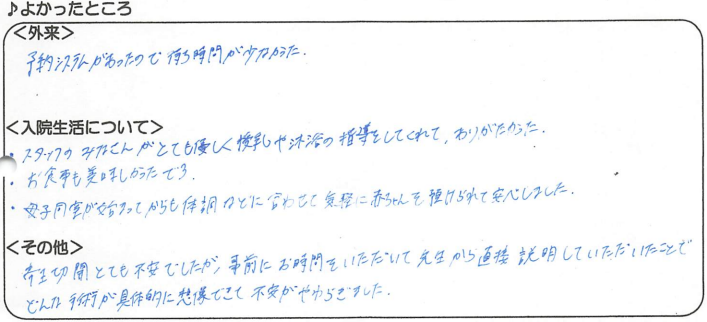 ♪よかったところ
<外来>
予約システムがあったので 待ち時間が少なかった.
<入院生活について>
・スタッフの みなさん がとても優しく 授乳や沐浴の 指導をしてくれて, ありがたかった.
・お食事も美味しかったです.
・母子同室が始まってからも 体調 などに 合わせて 気軽に赤ちゃんを 預けられて 安心しました.
<その他>
帝王切開 とても不安でしたが, 事前に お時間を いただいて 先生 から 直接 説明していただいたことで
どんな 手術が 具体的に 想像できて 不安がやわらぎました.